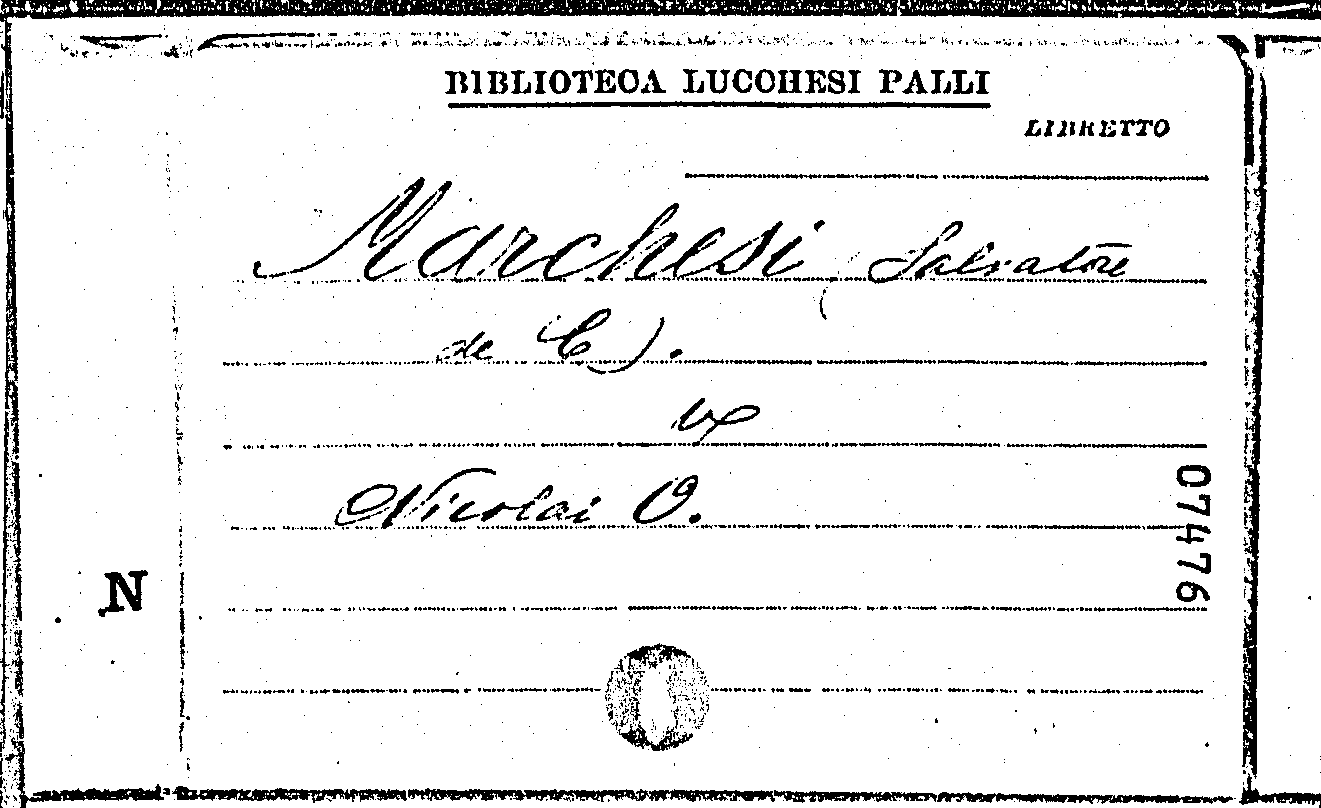 BIBLIOTECA LUCCHESI PALLI
LIBRETTO
Marchesi (Salvatore
de C).
Nicolai O.
N
07476